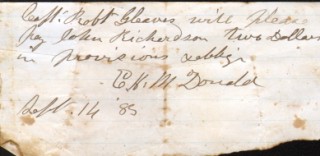 Capt. Robt Gleaves will please
pay John Richardson two Dollars
in provisions & oblige
E. H. McDonald
Sept. 14 '85